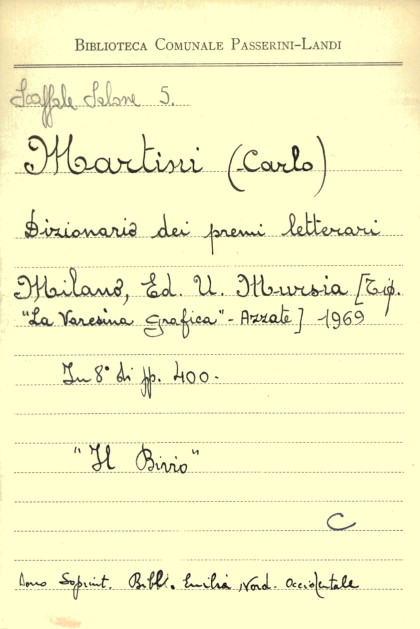 BIBLIOTECA COMUNALE PASSERINI-LANDI
Scaffale Salone 5.
Martini (Carlo)
Dizionario dei premi letterari
Milano, Ed. U. Mursia [Tip.
"La Varesina Grafica" - Azzate] 1969
In 8° di pp. 400.
"Il Bivio"
C
Dono Soprint. Bibl. Emilia Nord. Occidentale